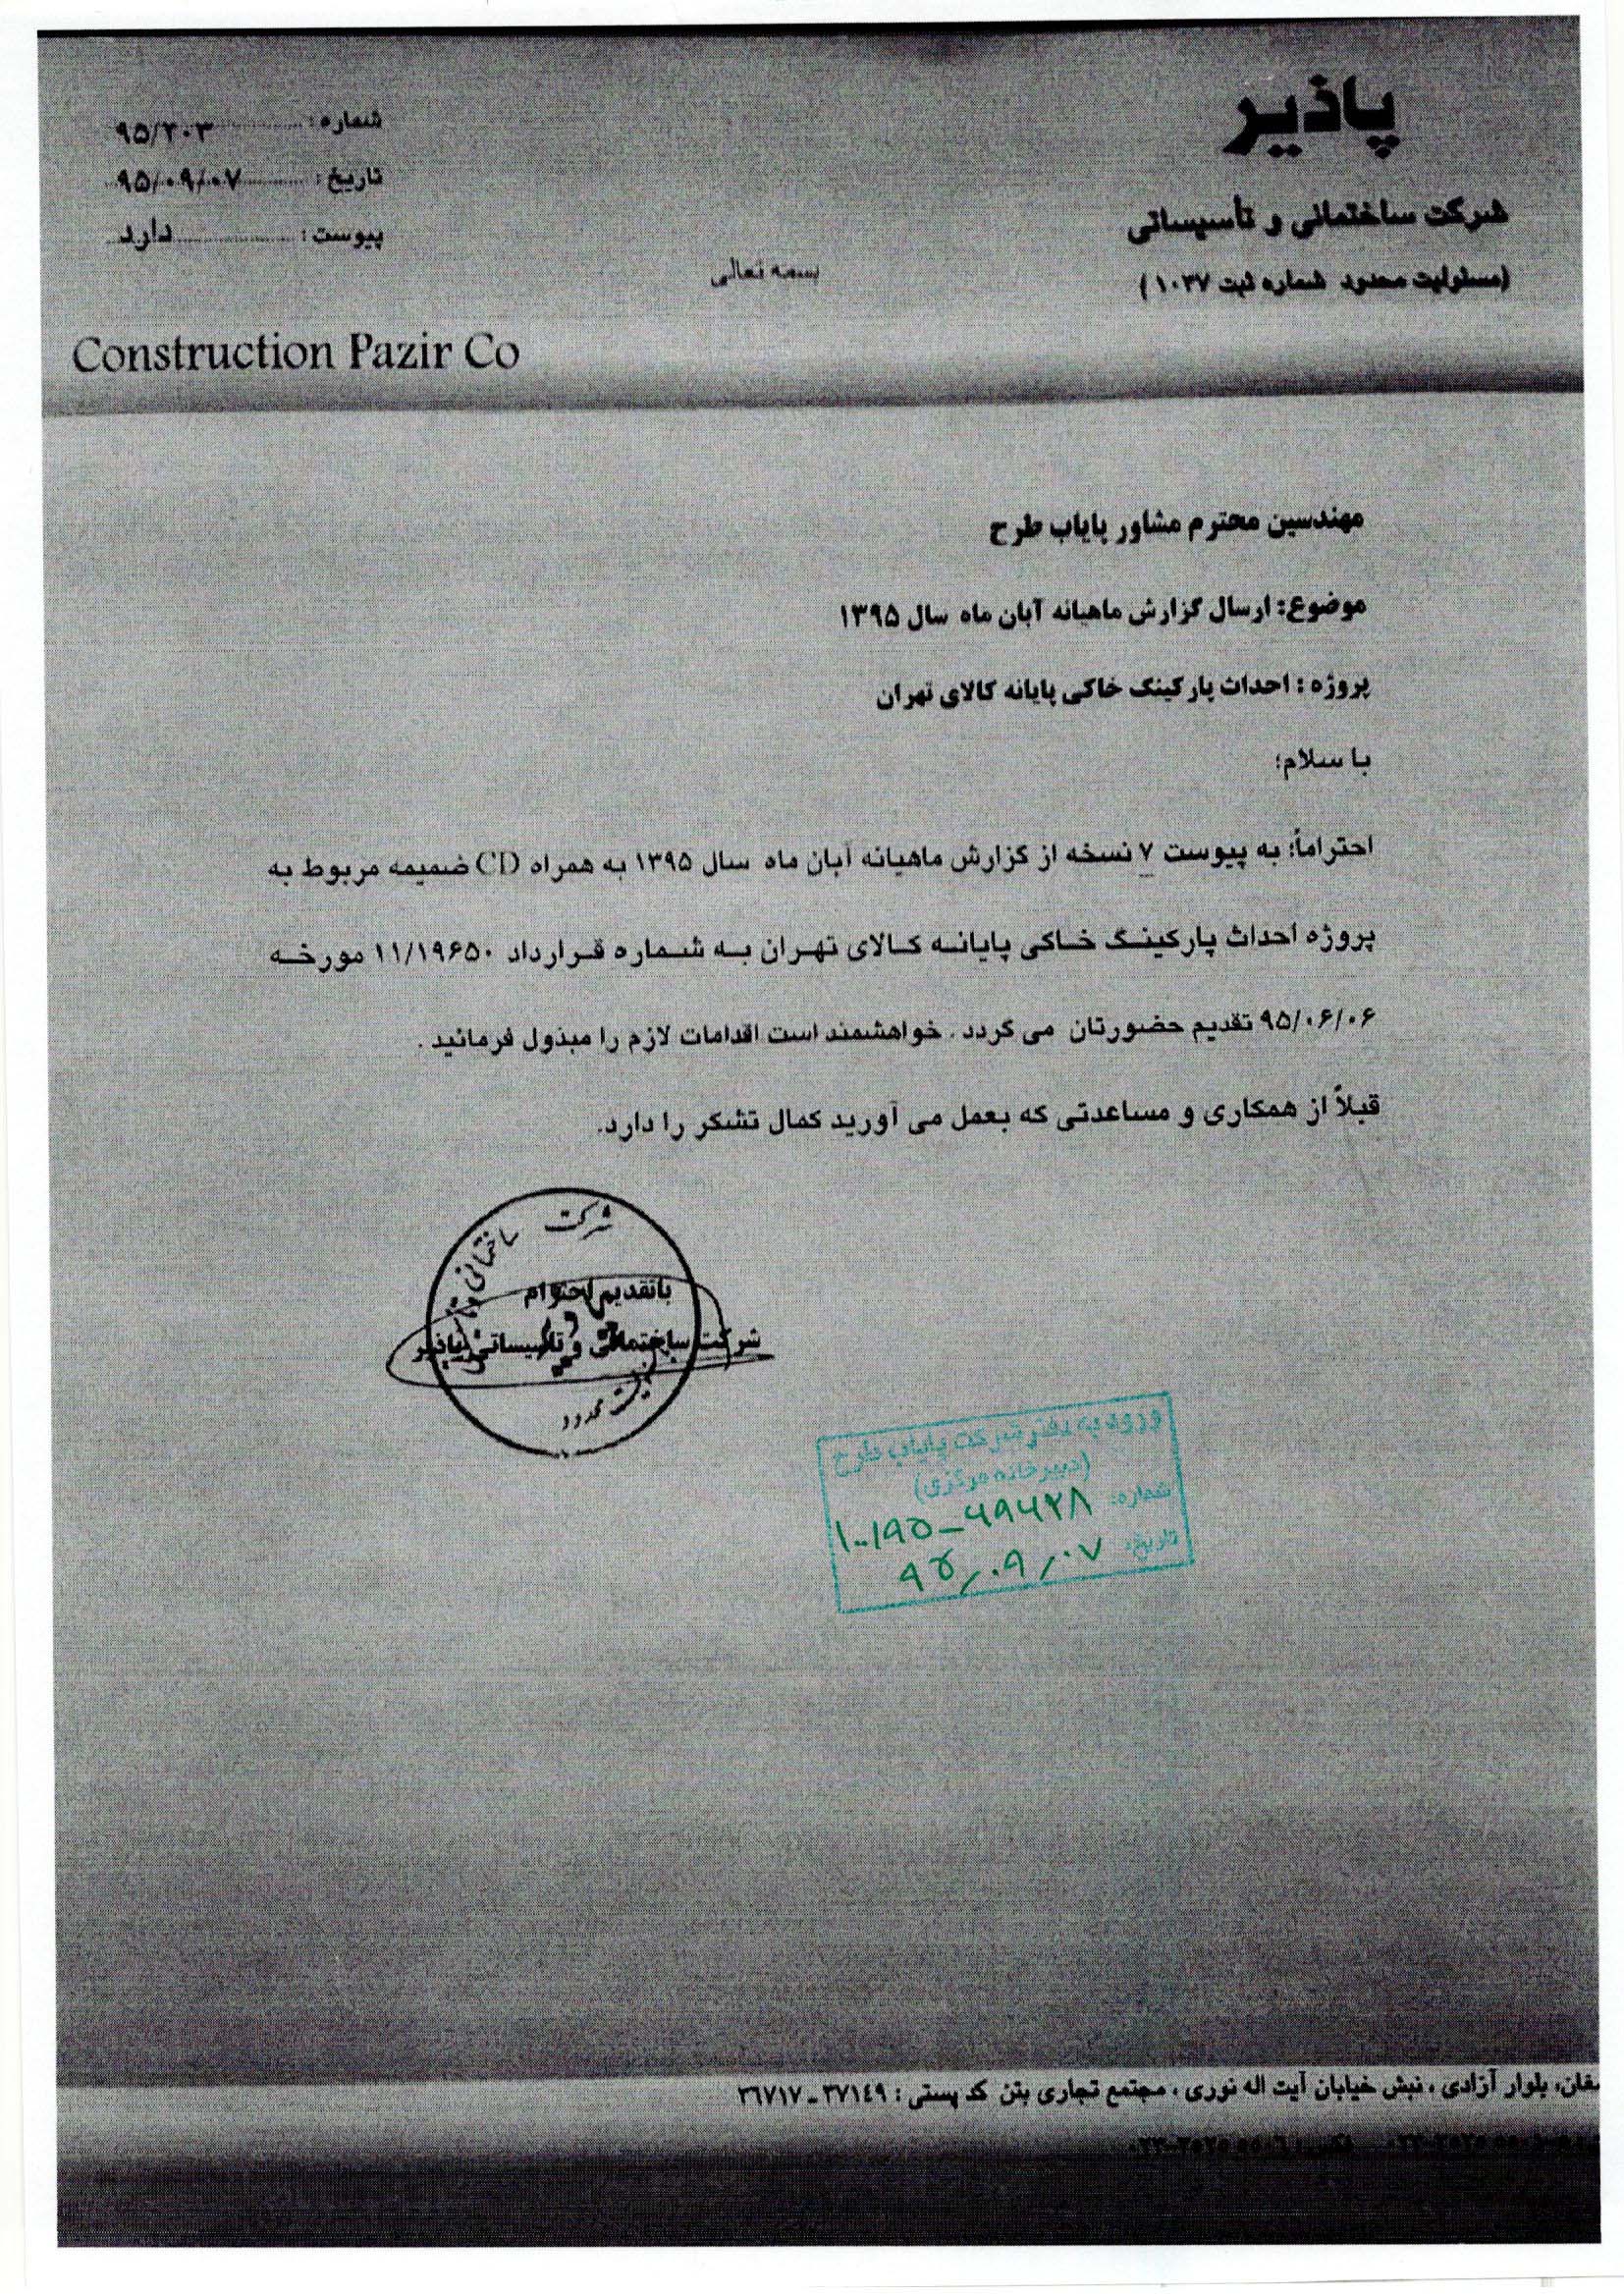 پاذیر
شرکت ساختمانی و تأسیساتی
(مسئولیت محدود شماره ثبت ۱۰۳۷)
شماره: ۹۵/۲۰۳
تاریخ: ۹۵/۰۹/۰۷
پیوست: دارد
بسمه تعالی
Construction Pazir Co
مهندسین محترم مشاور پایاب طرح
موضوع: ارسال گزارش ماهیانه آبان ماه سال ۱۳۹۵
پروژه : احداث پارکینگ خاکی پایانه کالای تهران
با سلام؛
احتراماً؛ به پیوست ۷ نسخه از گزارش ماهیانه آبان ماه سال ۱۳۹۵ به همراه CD ضمیمه مربوط به
پروژه احداث پارکینگ خاکی پایانه کالای تهران به شماره قرارداد ۱۱/۱۹۶۵۰ مورخه
۹۵/۰۶/۰۶ تقدیم حضورتان می گردد . خواهشمند است اقدامات لازم را مبذول فرمائید .
قبلاً از همکاری و مساعدتی که بعمل می آورید کمال تشکر را دارد.
شرکت ساختمانی و
باتقدیم احترام
شرکت ساختمانی و تاسیساتی پاذیر
محدود
ورود به دفتر شرکت پایاب طرح
(دبیرخانه مرکزی)
شماره: ۱۰۰/۹۵-۶۹۶۲۸
تاریخ: ۹۵/۰۹/۰۷
بلوار آزادی ، نبش خیابان آیت اله نوری ، مجتمع تجاری بتن کد پستی : ۳۷۱٤۹-۳٦۷۱۷